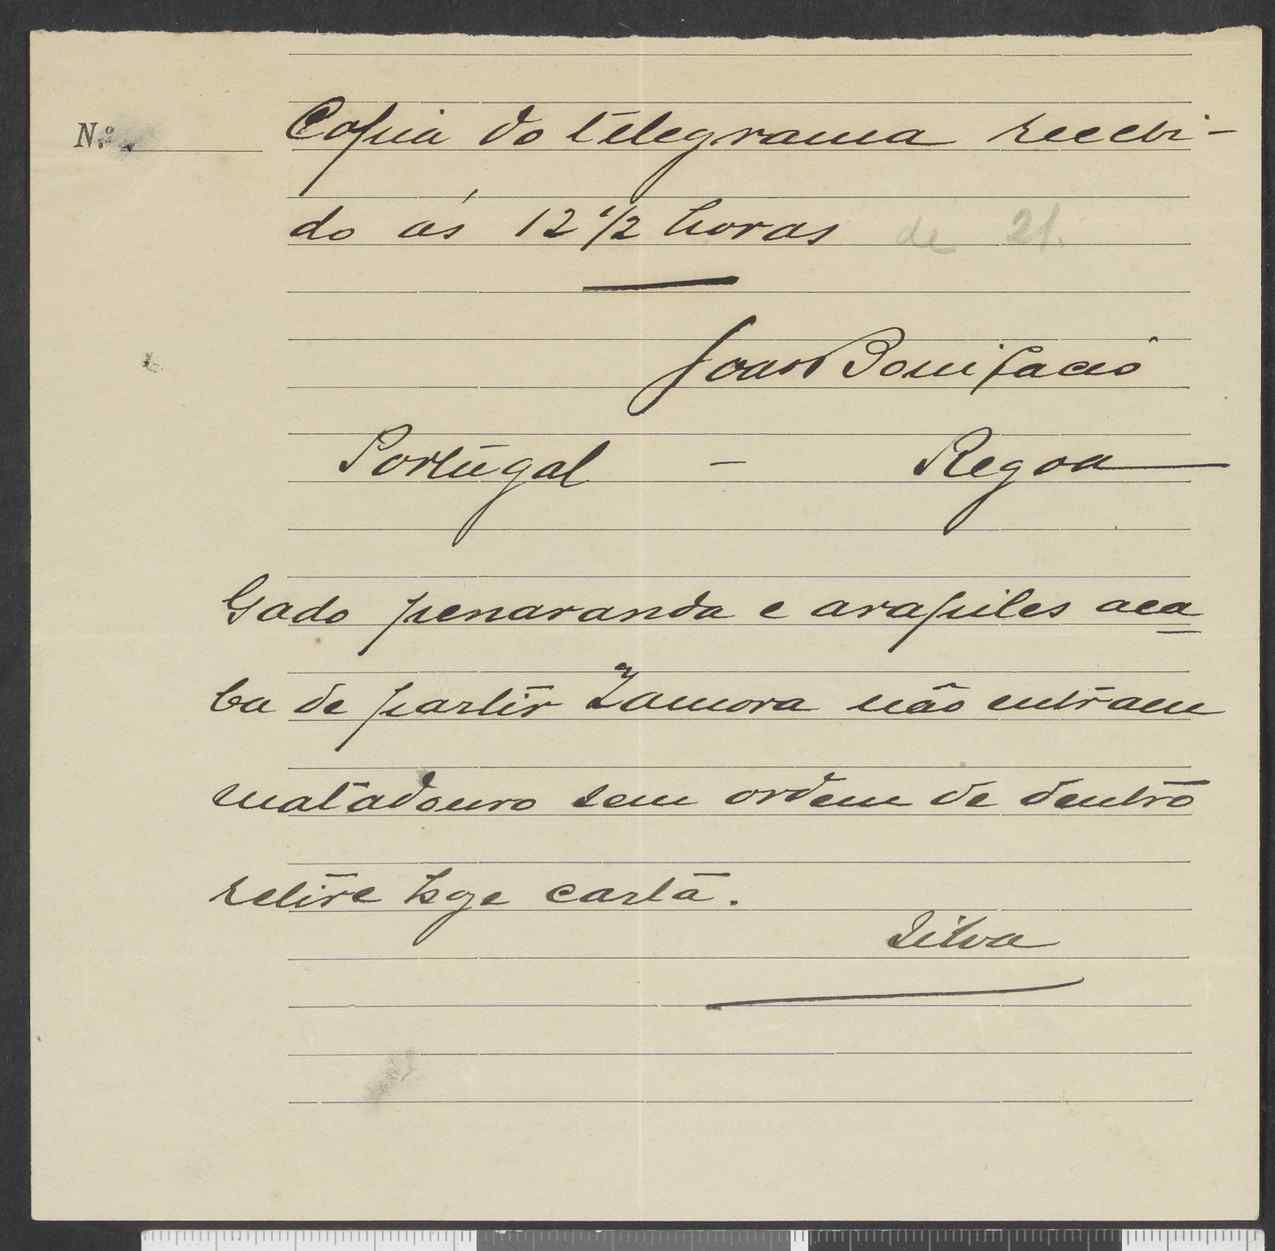 N.º
Copia do telegrama recebi-
do ás 12 1/2 horas de 21.
Joao Bonifacio
Portugal - Regoa
Gado penaranda e arapiles aca
ba de partir Zamora não entram
matadouro sem ordem de dentro
retire hoje carta.
Silva